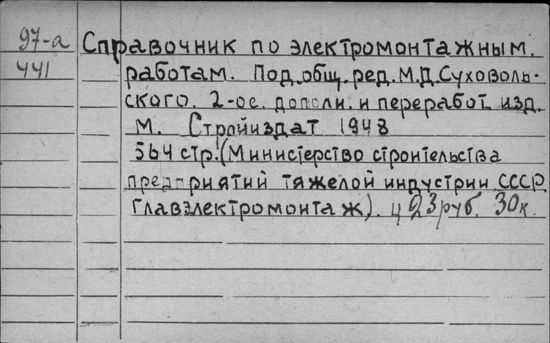 97-а Справочник по электромонтажным.
441 работам. Под общ. ред. М.Д. Суховоль-
ского. 2-ое. дополн. и переработ. изд.
М. Стройиздат 1948
564 стр. (Министерство строительства
предприятий тяжелой индустрии СССР
Главэлектромонтаж). ц 23 руб. 30 к.